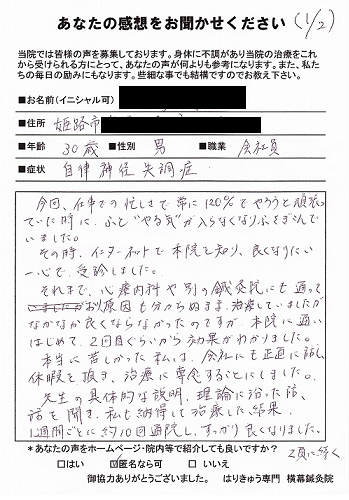 あなたの感想をお聞かせください (1/2)
当院では皆様の声を募集しております。身体に不調があり当院の治療をこれ
から受けられる方にとって、あなたの声が何よりも参考になります。また、私た
ちの毎日の励みにもなります。些細な事でも結構ですのでお教え下さい。
■お名前(イニシャル可)
■住所 姫路市
■年齢 30歳 ■性別 男 ■職業 会社員
■症状 自律神経失調症
今回、仕事での忙しさで常に120%でやろうと頑張っ
ていた時に、ふと"やる気"が入らなくなりふさぎこんで
いました。
その時、インターネットで本院を知り、良くなりたい
一心で、受診しました。
それまで、心療内科や別の鍼灸院にも通って
おり原因も分からぬまま、治療していましたが
なかなか良くならなかったのですが、本院に通い
はじめて、2回目ぐらいから効果がわかりました。
本当に苦しかった私は、会社にも正直に話し
休暇を頂き、治療に専念することにしました。
先生の具体的な説明、理論に沿った
話を聞き、私も納得して治療した結果、
1週間ごとに約10回通院し、すっかり良くなりました。
*あなたの声をホームページ・院内等で紹介しても良いですか? 2頁に続く
□はい ☑匿名なら可 □いいえ
御協力ありがとうございました。 はりきゅう専門 横幕鍼灸院